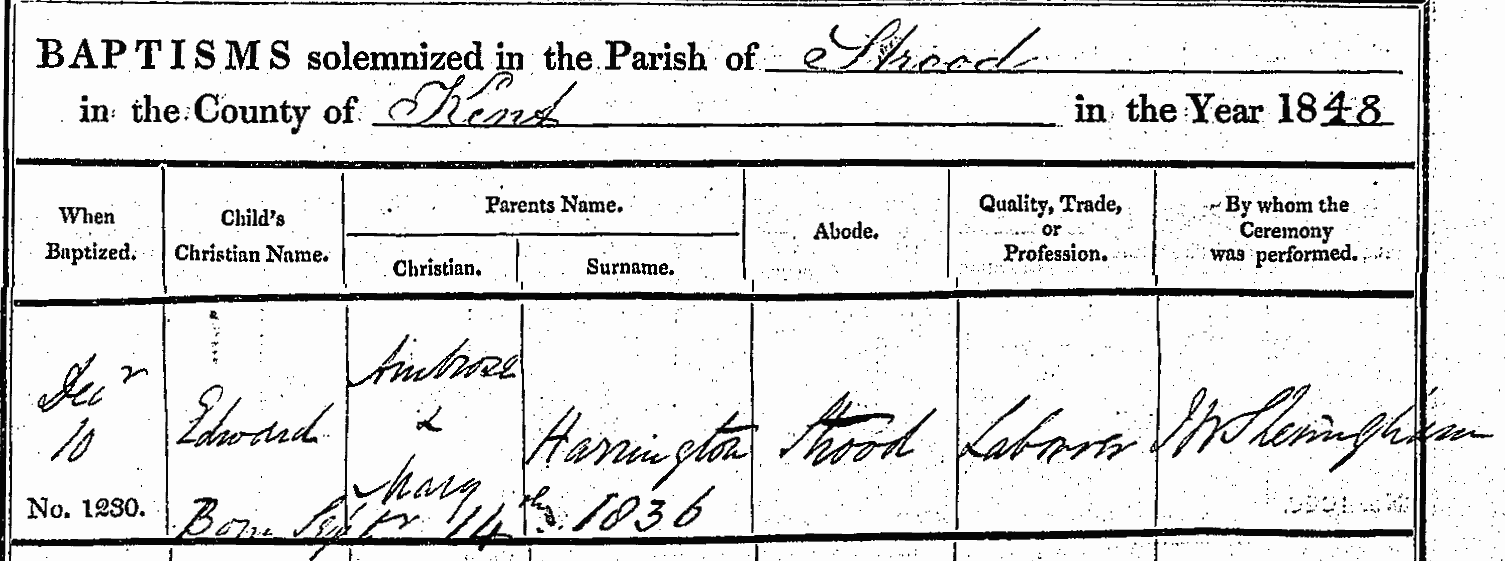 BAPTISMS solemnized in the Parish of Strood
in the County of Kent in the Year 1848
When Baptized.
Child's Christian Name.
Parents Name.
Christian.
Surname.
Abode.
Quality, Trade, or Profession.
By whom the Ceremony was performed.
Decr 10
Edward
Ambrose & Mary
Harrington
Strood
Labourer
J W Sheringham
No. 1230.
Born Septr 14th 1836